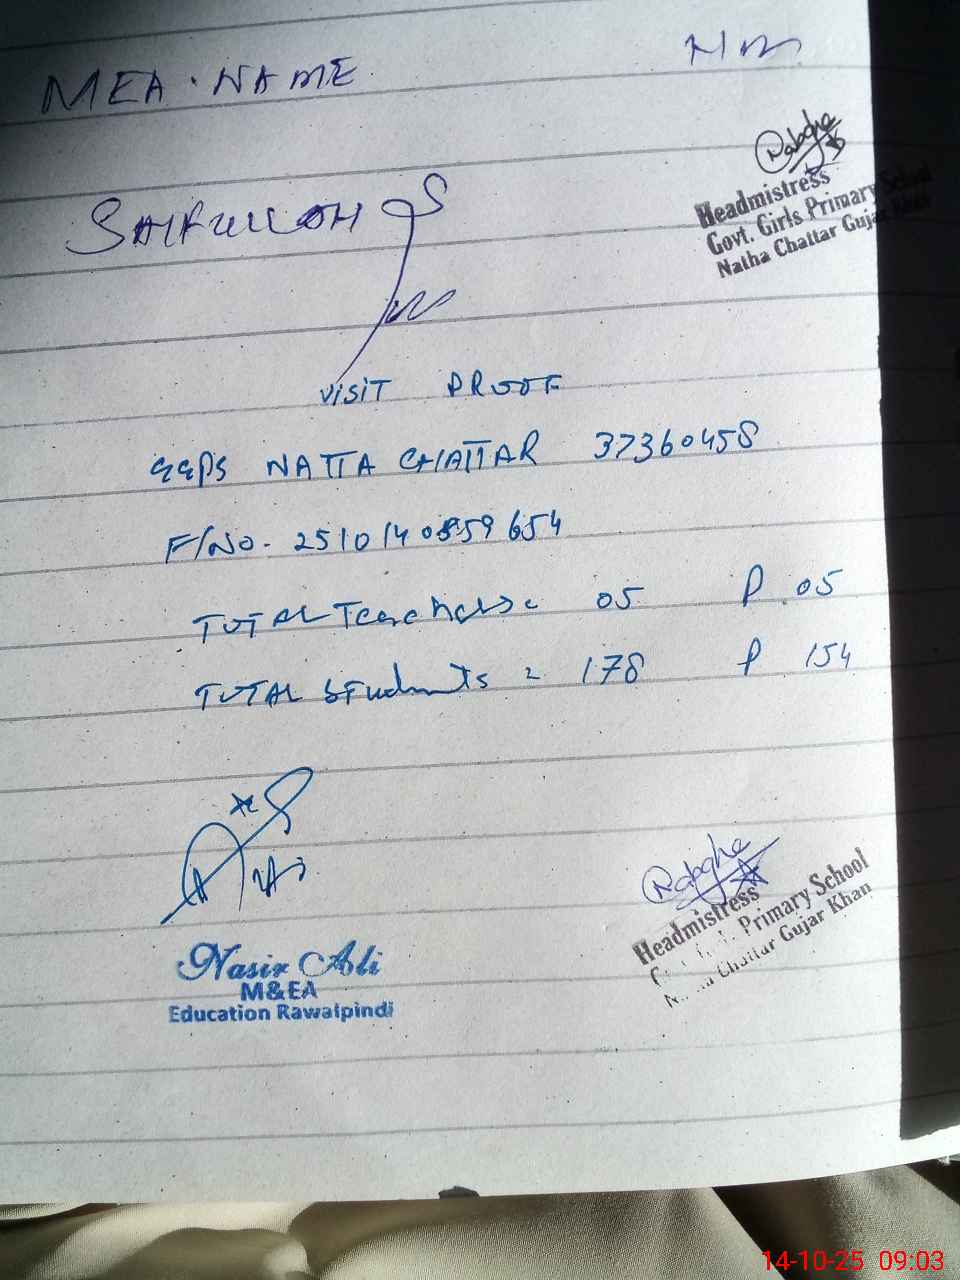 MEA. NAME HM
SAIFULLAH
Rabgha
Headmistress
Govt. Girls Primary School
Natha Chattar Gujar Khan
VISIT PROOF
GGPS NATTA CHATTAR 37360458
F/No. 2510140859654
TOTAL Teachers = 05 P 05
TOTAL Students = 178 P 154
Nasir Ali
M&EA
Education Rawalpindi
Rabgha
Headmistress
Primary School
Chattar Gujar Khan
14-10-25 09:03